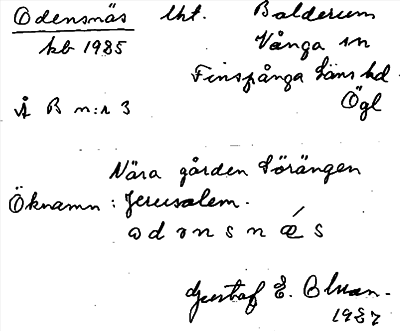 Odensnäs lht. Balderum
kb 1985 Vånga sn
Finspånga läns hd.
Ögl
Å B n:r 3
Nära gården Sörängen
Öknamn: Jerusalem.
o d ə n s n ǽ s
Gustaf E.
1927